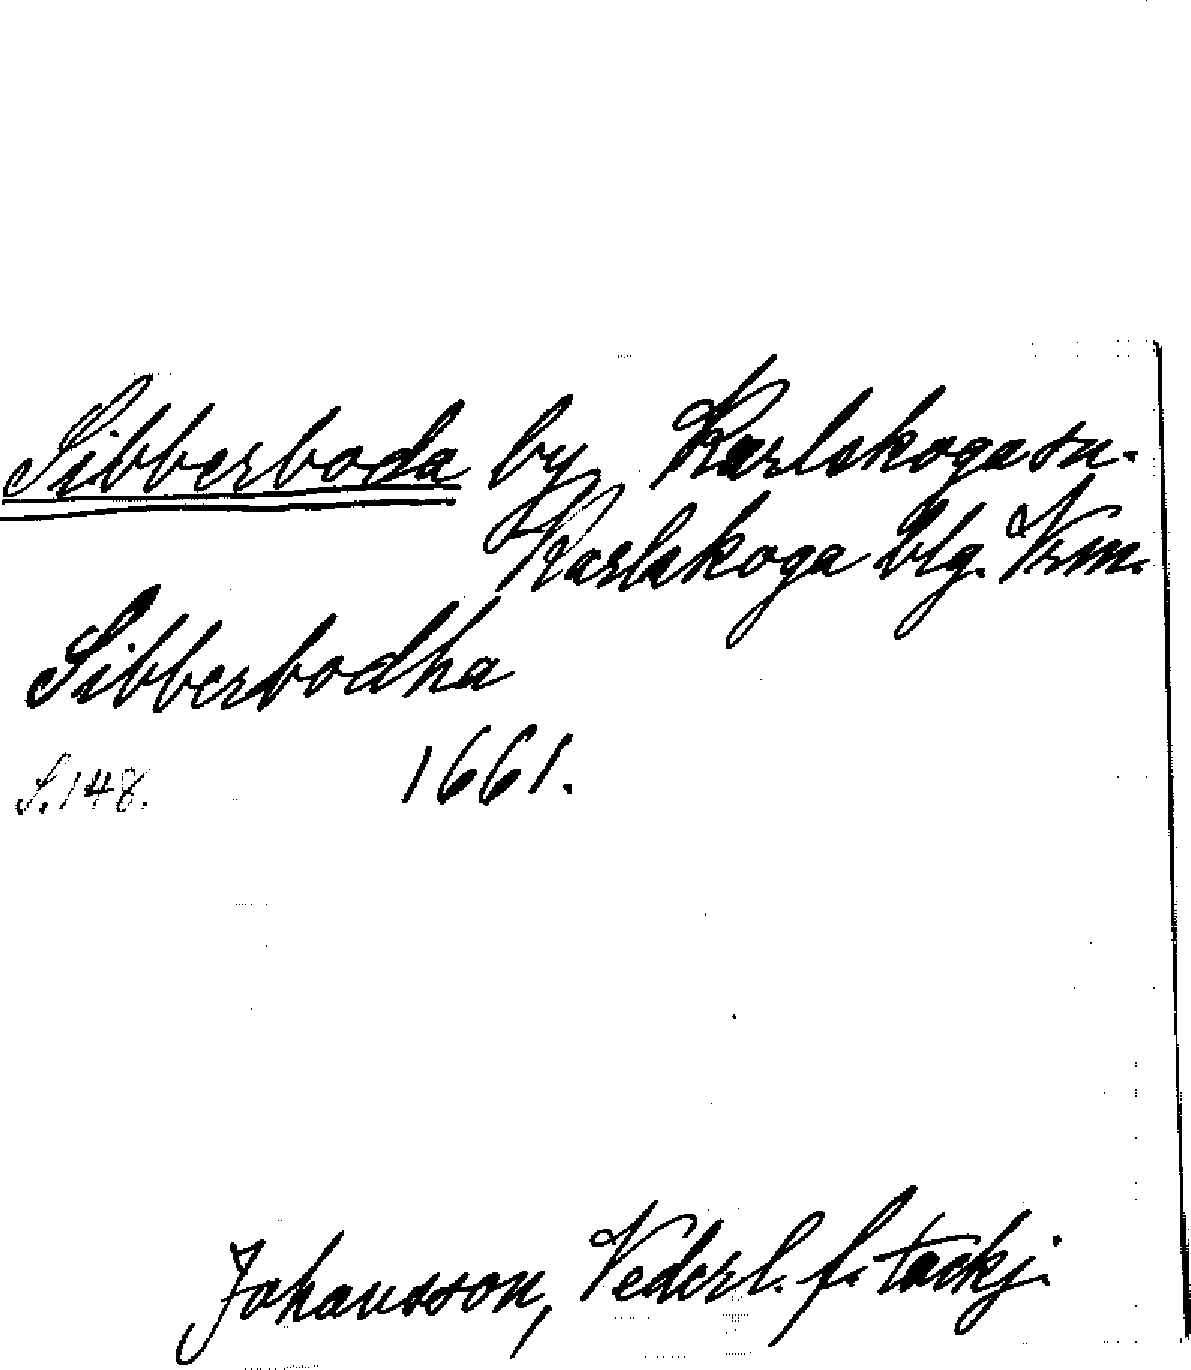 Sibberboda by Karlskoga sn.
Karlskoga blg. Vrm.
Sibberbodha
S. 148. 1661.
Johansson, Vederl. f. tackj.